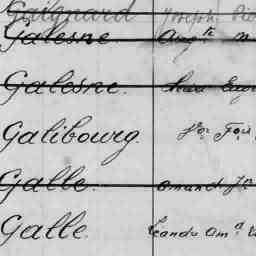 Gaignard Joseph
Galesne Aug te
Galesne
Galibourg. Fois
Galle Amand Jn
Galle Leandre Am d